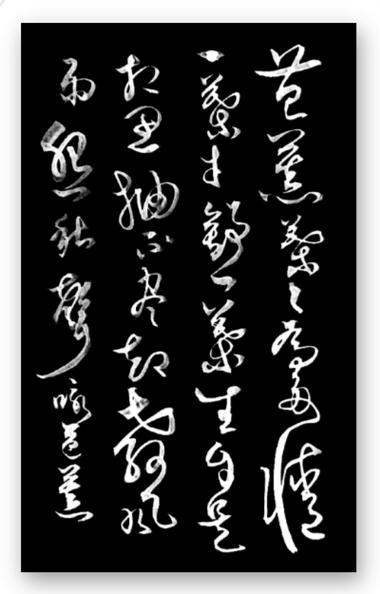 芭蕉葉々為多情
一葉才舒一葉生自是
相思抽不尽却教風
雨怨秋聲咏芭蕉